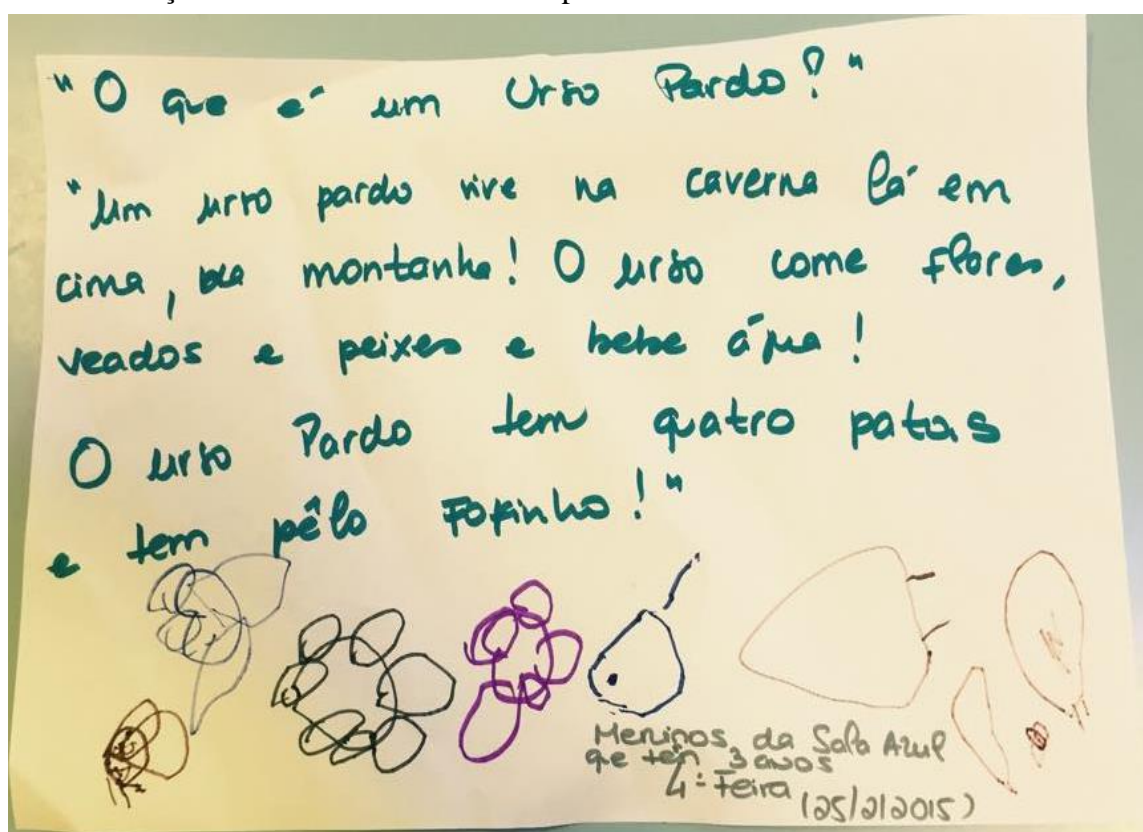 "O que é um Urso Pardo?"
"Um urso pardo vive na caverna lá em
cima, na montanha! O urso come flores,
veados e peixes e bebe água!
O urso Pardo tem quatro patas
e tem pêlo Fofinho!"
Meninos da Sala Azul
que têm 3 anos
4ª Feira
(25/2/2015)